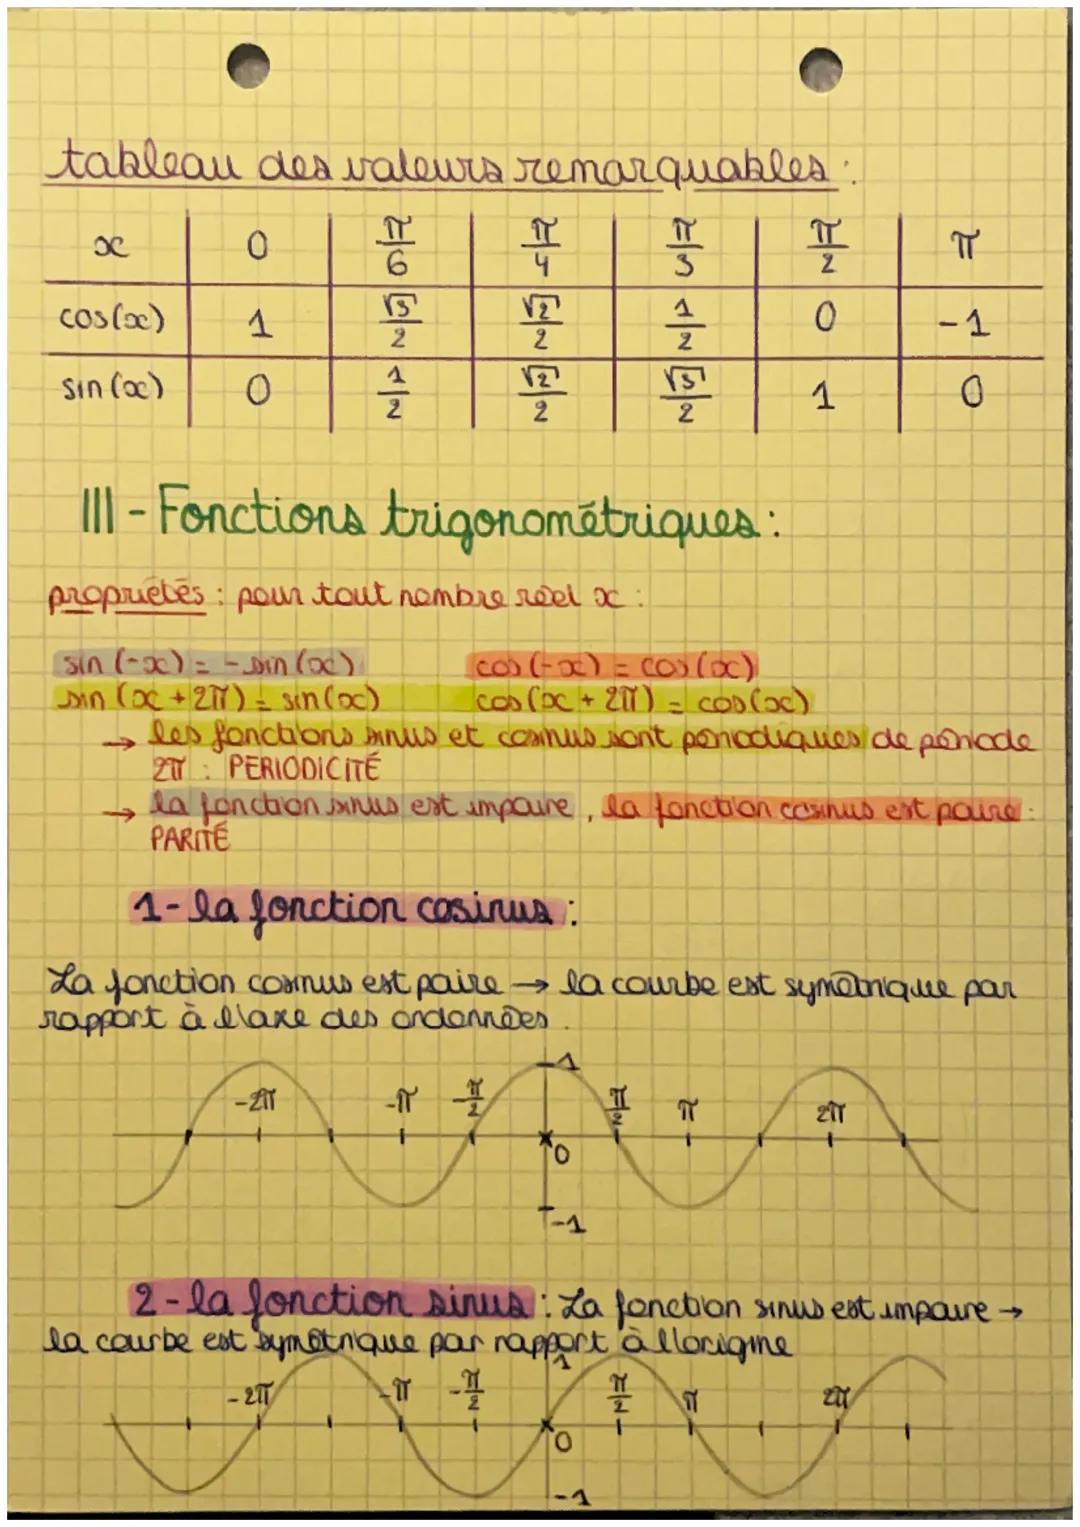 tableau des valeurs remarquables :
x 0 π/6 π/4 π/3 π/2 π
cos(x) 1 √3/2 √2/2 1/2 0 -1
sin(x) 0 1/2 √2/2 √3/2 1 0
III - Fonctions trigonométriques :
propriétés : pour tout nombre réel x :
sin (-x) = - sin (x) cos (-x) = cos (x)
sin (x + 2π) = sin(x) cos (x + 2π) = cos(x)
→ les fonctions sinus et cosinus sont périodiques de période
2π : PERIODICITÉ
→ la fonction sinus est impaire, la fonction cosinus est paire :
PARITÉ
1 - la fonction cosinus :
La fonction cosinus est paire → la courbe est symétrique par
rapport à l'axe des ordonnées.
1
-2π -π -π/2 π/2 π 2π
0
-1
2 - la fonction sinus : La fonction sinus est impaire →
la courbe est symétrique par rapport à l'origine
1
-2π -π -π/2 π/2 π 2π
0
-1